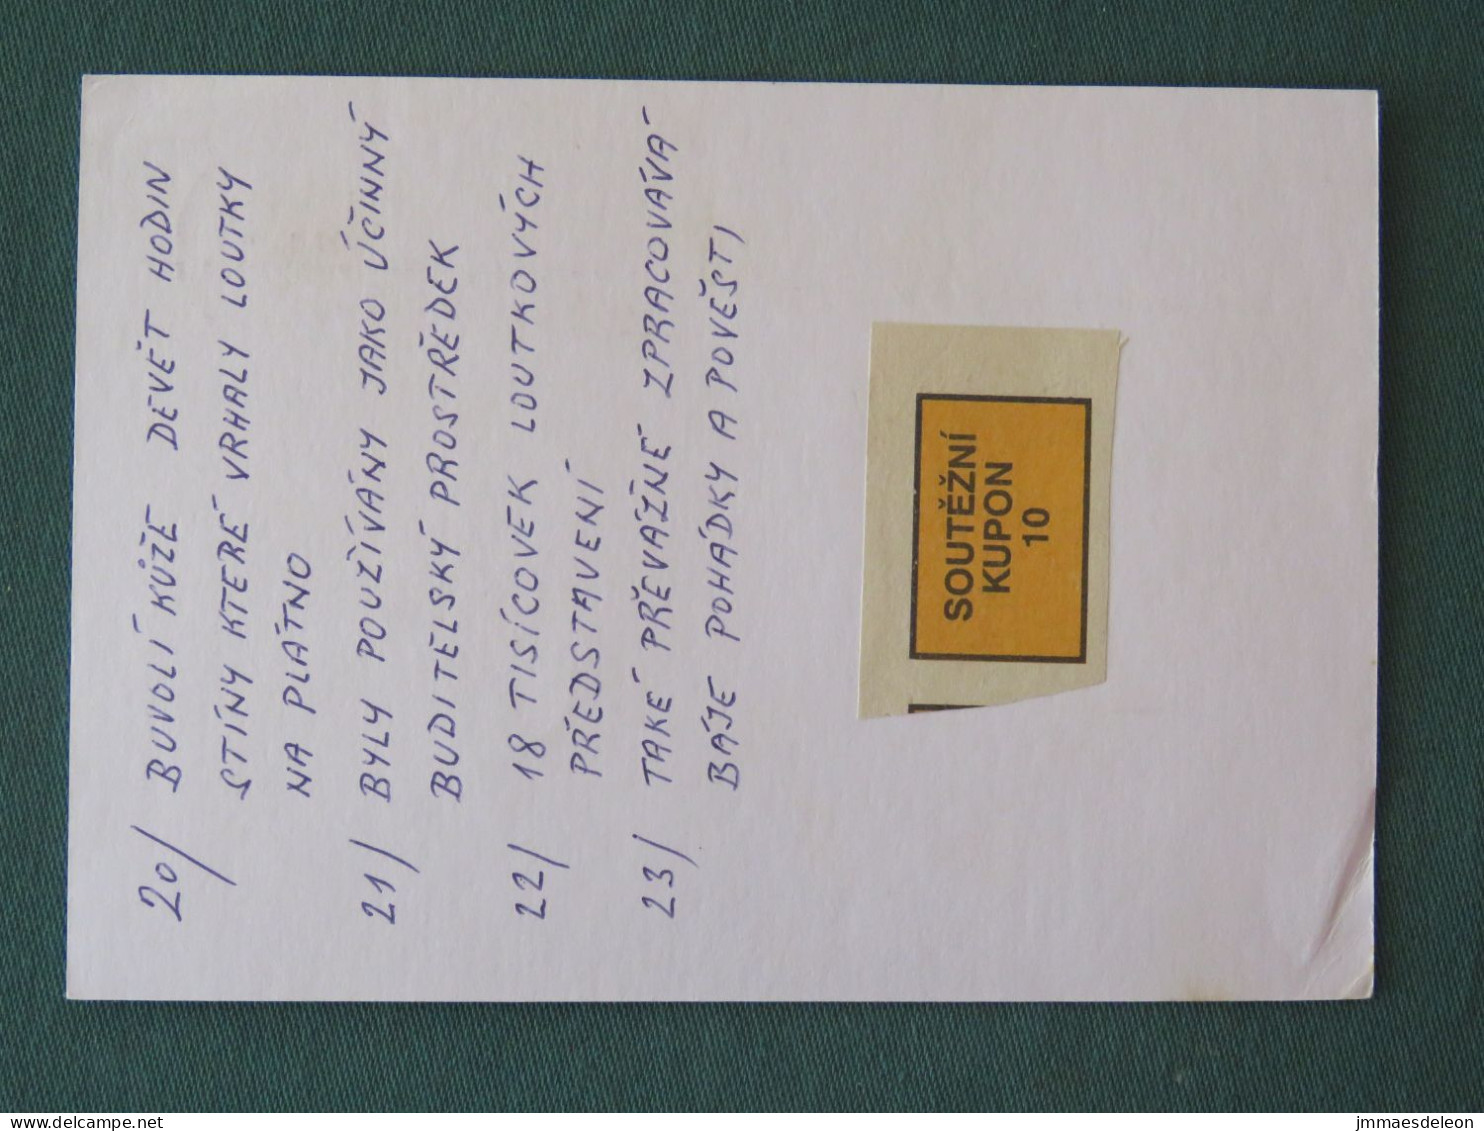 20/ BUVOLÍ KŮŽE DEVĚT HODIN
STÍNY KTERÉ VRHALY LOUTKY
NA PLÁTNO
21/ BYLY POUŽÍVÁNY JAKO ÚČINNÝ
BUDITELSKÝ PROSTŘEDEK
22/ 18 TISÍCOVEK LOUTKOVÝCH
PŘEDSTAVENÍ
23/ TAKÉ PŘEVÁŽNĚ ZPRACOVÁVÁ
BÁJE POHÁDKY A POVĚSTI
SOUTĚŽNÍ
KUPON
10
delcampe.net
jmmaesdeleon